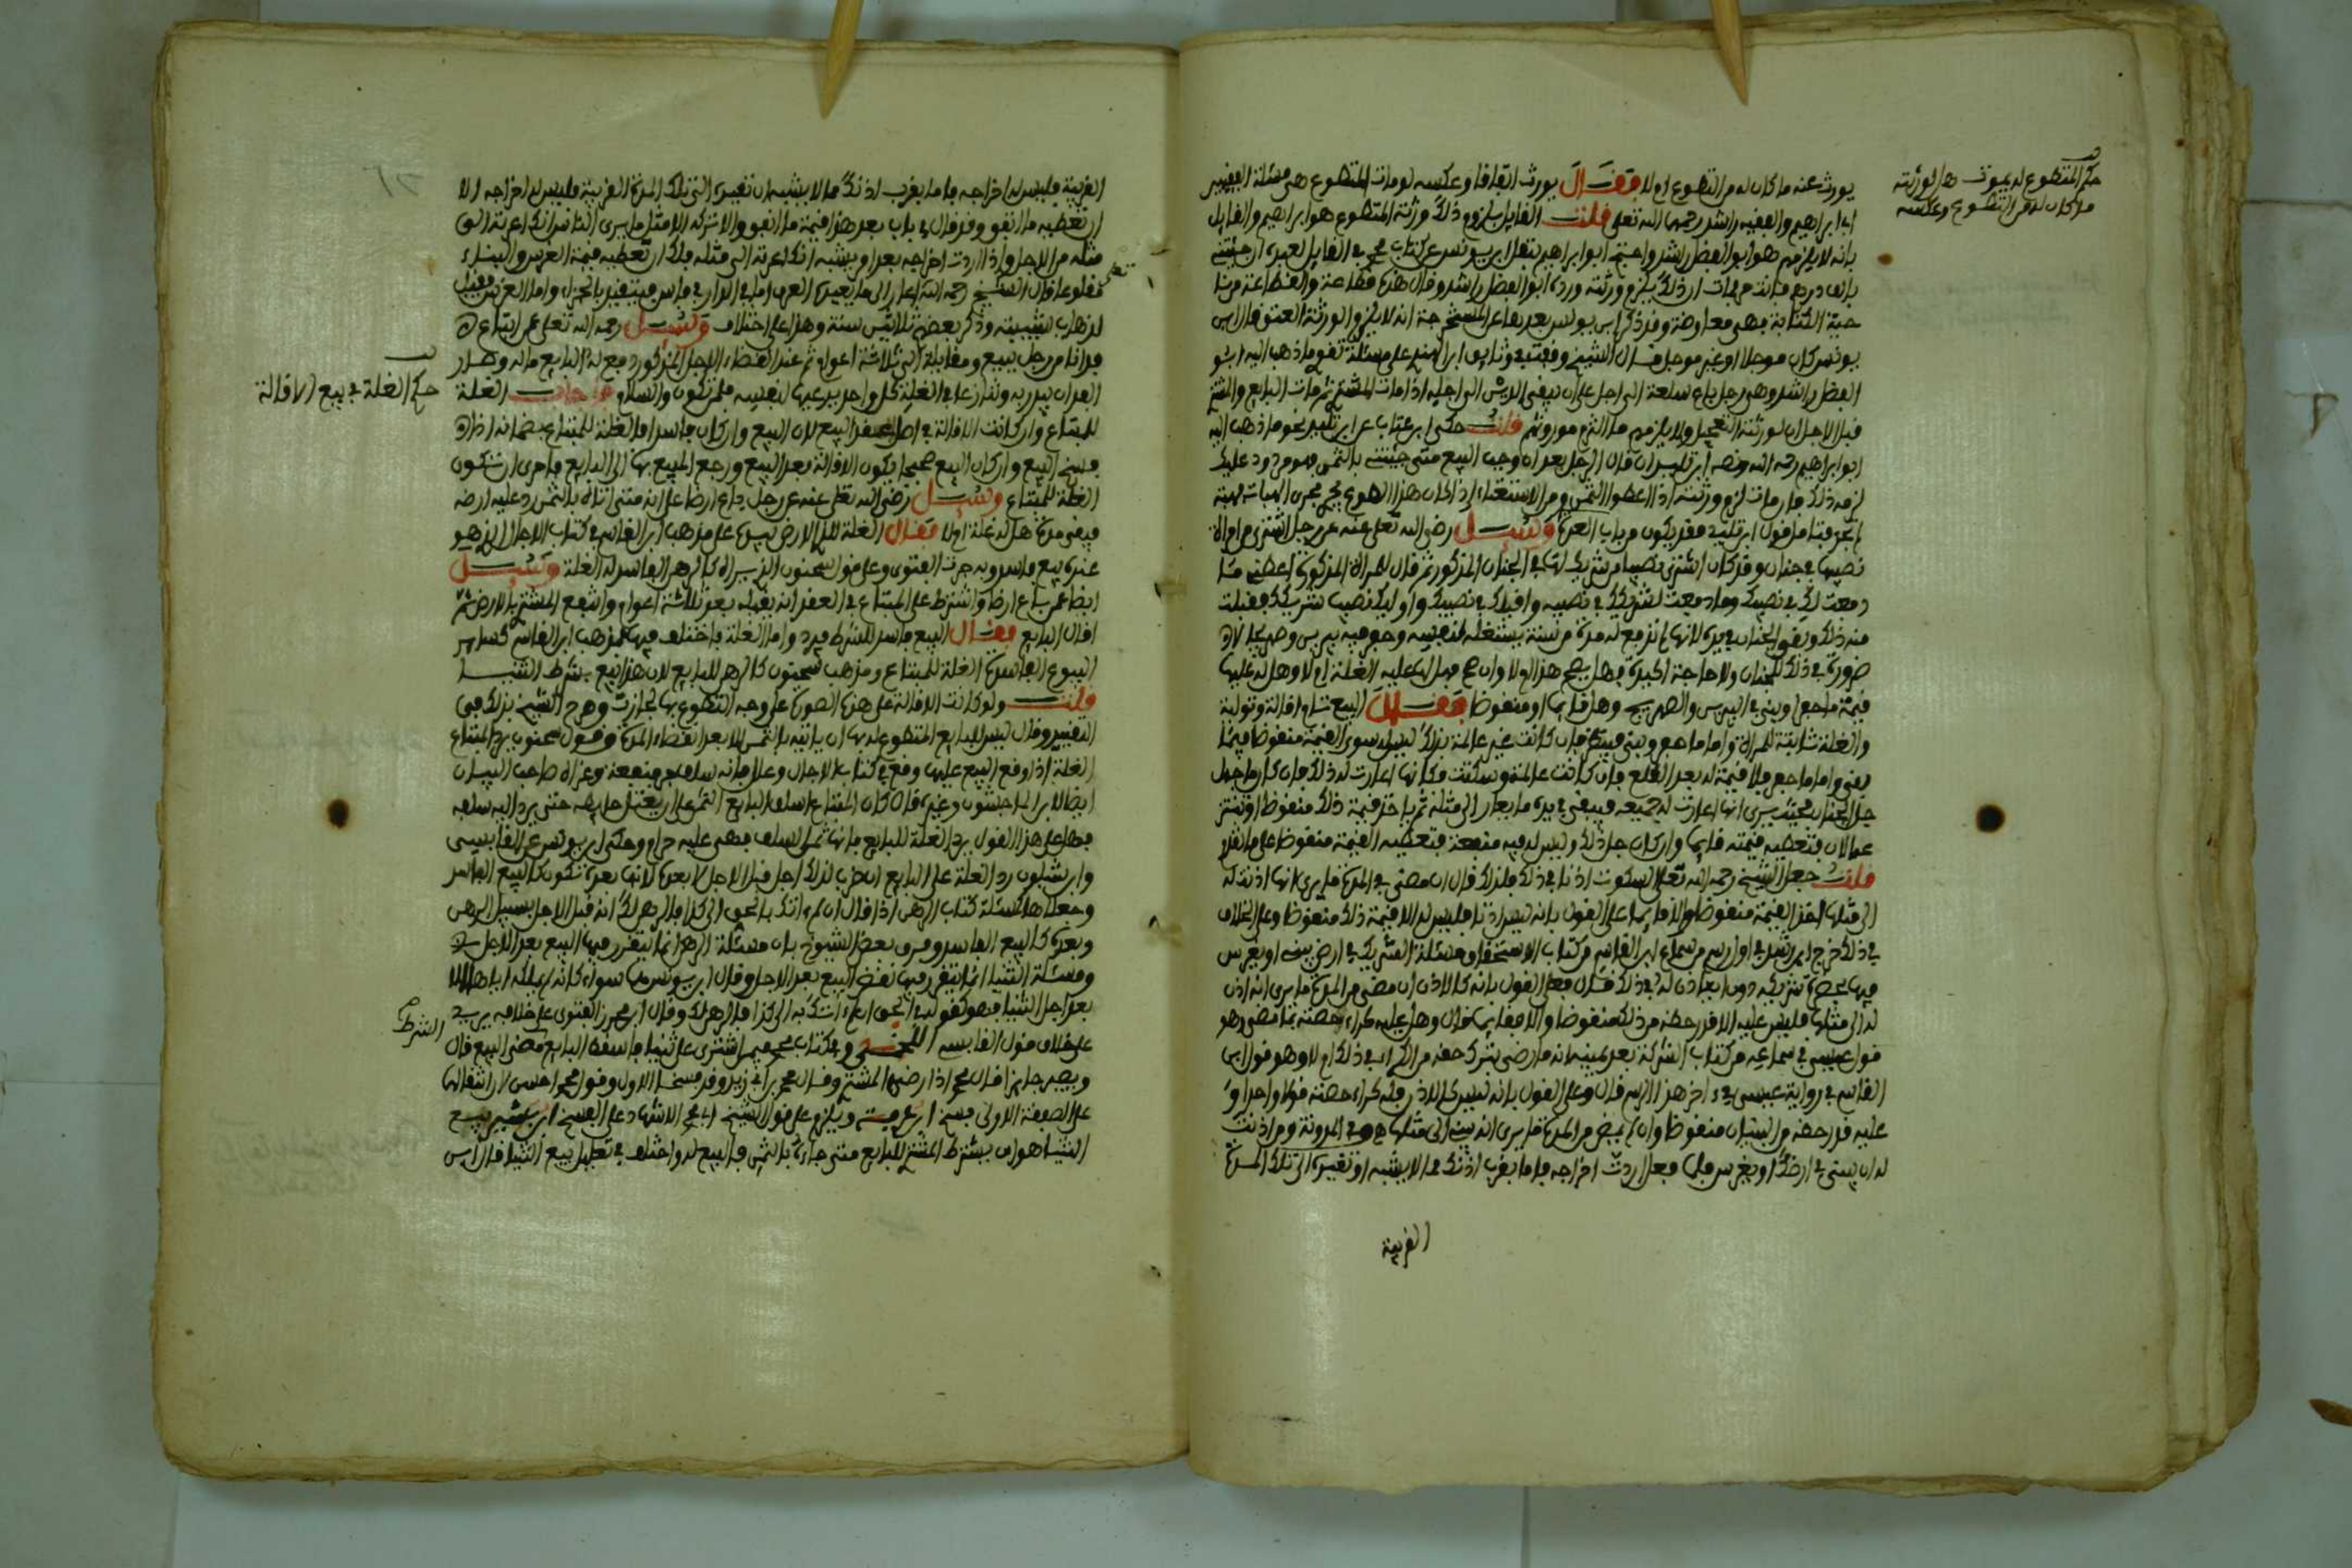 يورث عنه ما كان له من التطوع ام لا فقال يورث اتفاقا وعكسه لو مات المتطوع هي مسئلة الفقيهين
ابي ابراهيم والفقيه راشد رحمهما الله تعلى قلت القايل بلزوم ذلك ورثة المتطوع هو ابو ابراهيم والقايل
بانه لا يلزمهم هو ابو الفضل راشد واحتج ابو ابراهيم بنقل ابن يونس عن كتاب محمد في القايل لعبده ان جئتني
بالف درهم فانت حر فمات ان ذلك يلزم ورثته ورده ابو الفضل راشد وقال هذه قطاعة والقطاعة من نا
حية الكتابة فهي معاوضة وقد ذكر ابن يونس بعد هذا عن المستخرجة انه لا يلزم الورثة العتق قال ابن
يونس كان موجلا او غير موجل قال الشيخ وفعت في وثايق ابن الهندي على مسئلة تقوي ما ذهب اليه ابو
الفضل راشد وهي رجل باع سلعة الى اجل على ان يبقى الدين الى اجله اذا مات المشتري ثم مات البايع والمشتري
قبل الاجل ان لورثته التعجيل ولا يلزمهم ما التزم موروثهم قلت حكى ابن عتاب عن ابن تليد نحو ما ذهب اليه
ابو ابراهيم رحمه الله ونصه ابن تليد ان قال الرجل بعد ان وجب البيع متى جئتني بالثمن فهو مردود عليك
لزمه ذلك فان مات لزم ورثته اذا اعطوا الثمن ومن الاستغناء اذا كان هذا الطوع يجري مجرى الهبات فهبة
لم تحز فتامل قول ابن تليد فقد يكون من باب العدة وسئل رضي الله تعلى عنه عن رجل اشترى من امراة
نصيبها في جنان وقد كان اشترى نصيبا من شريك لها في الجنان المذكور ثم قال للمراة المذكورة اعطني ما
دفعت لك في نصيبك وما دفعت لشريكك في نصيبه واقيلك في نصيبك واوليك نصيب شريكك فقبلت
منه ذلك وبقي الجنان بيده لانها لم تدفع له مدة من سنة يستغله لنفسه وجعل فيه بير بس وصهريجا لان
ضرورة في ذلك للجنان ولا حاجة اكيدة فهل يصح هذا ام لا وان صح فهل لها عليه الغلة ام لا وهل له عليها
قيمة ما جعل وبنى في البير بس والصهريج وهل قايما او منقوضا فقال البيع تام اقالة وتولية
والغلة ثابتة للمراة واما ما جعل وبنى فينظر فان كانت غير عالمة بذلك فليس له سوى القيمة منقوضا فيما
بقي واما ما جص فلا قيمة له بعد القلع فان كانت عالمة وسكتت فكانها اعارت له ذلك فان كان ما جعل
جل الجنان بحيث يرى انها اعارت له جميعه فيبقى بيده ما يعار الى مثله ثم ياخذ قيمة ذلك منقوضا او تنتزعه
عما لان فتعطيه قيمته قايما وان كان جل ذلك وليس له فيه منفعة فتعطيه القيمة منقوضا على ما نقلا
قلت جعل الشيخ رحمه الله تعلى السكوت اذنا في ذلك فلذلك قال ان مضى في المدة ما يرى انها اذنت له
الى مثلها اخذ القيمة منقوضا والا قايما على القول بانه ليس اذنا فليس له الا قيمة ذلك منقوضا وعلى الخلاف
في ذلك خرج ابن رشد في اول رسم من سماع ابن القاسم من كتاب الاستحقاق ومسئلة الشريك في ارض يبني او يغرس
فيها بمحضر شريكه دون ان ياذن له في ذلك فقال فعلى القول بانه كالاذن ان مضى من المدة ما يرى انه اذن
له الى مثلها فليس عليه الا قدر حظه من ذلك منقوضا والا فقايما قال وهل عليه كراء حصته بما مضى وهو
قول عيسى في سماعه من كتاب الشركة بعد يمينه انه ما رضي بترك حقه من الكراء في ذلك ام لا وهو قول ابن
القاسم في رواية عيسى في اخر هذا الرسم قال وعلى القول بانه ليس كالاذن فله كراء حصته قولا واحدا و
عليه قدر حظه من البنيان منقوضا وان لم يمض من المدة ما يرى انه بنى الى مثلها وفي المدونة ومن اذنت
له ان يبني في ارضك او يغرس فلما فعل اردت اخراجه فاما بقرب اذنك مما لا يشبه ان تعيره الى تلك المدة
القريبة
حكم المتطوع له يموت هل لورثته
ما كان له من التطوع وعكسه
القريبة فليس لك اخراجه فاما بقرب اذنك مما لا يشبه ان تعيره الى تلك المدة القريبة فليس لك اخراجه الا
ان تعطيه ما انفق وقد قال في باب بعد هذا قيمة ما انفق والا تركه الى مثل ما يرى الناس انك اعرته الى
مثله من الاجل واذا اردت اخراجه بعد امد يشبه انك اعرته الى مثله فلك ان تعطيه قيمة الغرس والبناء
مقلوعا قال الشيخ رحمه الله
لذهاب شبيبته وذكر بعضهم ثلاثين سنة وهذا على اختلاف وسئل رحمه الله تعلى عمن ابتاع
فدانا من رجل ببيع ومقابلة الى ثلاثة اعوام ثم عند انقضاء الاجل المذكور دفع له البايع ماله وصار
الفدان بيد ربه وتنازعا في الغلة كل واحد يدعيها لنفسه فلمن تكون والسلام فاجاب الغلة
للمبتاع وان كانت الاقالة في اصل عقد البيع لان البيع وان كان فاسدا فالغلة للمبتاع بضمانه اذا
فسخ البيع وان كان البيع صحيحا تكون الاقالة بعد البيع ورجع المبيع بها الى البايع فاحرى ان تكون
الغلة للمبتاع وسئل رضي الله تعلى عنه عن رجل باع ارضا على انه متى اتاه بالثمن رد عليه ارضه
فبقي مدة هل له غلة ام لا فقال الغلة لا لان الارض بيع على مذهب ابن القاسم في كتاب الاجال اذ هو
عنده بيع فاسد وبه جرت الفتوى وعلى قول سحنون الذي يراه كالرهن الفاسد له الغلة وسئل
ايضا عمن باع ارضا واشترط على المبتاع في العقد انه يقيله بعد ثلاثة اعوام وانتفع المشتري بالارض ثم
اقال البايع فقال البيع فاسد للشرط فيرد واما الغلة فاختلف فيها فمذهب ابن القاسم كساير
البيوع الفاسدة الغلة للمبتاع ومذهب سحنون كالرهن للبايع لان هذا بيع بشرط الثنيا
قلت ولو كانت الاقالة على هذه الصورة على وجه التطوع بها لجازت وصرح الشيخ بذلك في
التقييد وقال ليس للبايع المتطوع له بها ان ياتيه بالثمن الا بعد انقضاء المدة وقول سحنون يرد المبتاع
الغلة اذا وقع البيع عليها وقع في كتاب الاجال وعلله بانه سلف جر منفعة وعزاه صاحب البيان
ايضا لابن الماجشون وغيره قال كان المبتاع اسلف البايع الثمن على ان يغتل حايطه حتى يرد اليه سلفه
فهذا على هذا القول يرد الغلة للبايع فانها ثمن السلف فهي عليه حرام وحكى ابن يونس عن القابسي
وابن شبلون رد الغلة على البايع ان ضرب لذلك اجل قبل الاجل لا بعده لانها بعده تكون كالبيع الفاسد
وجعلاها كمسئلة كتاب الرهن اذا قال ان لم اتك بالحق الى كذا فالرهن لك انه قبل الاجل بسبيل الرهن
وبعده كالبيع الفاسد وفرق بعض الشيوخ بان مسئلة الرهن انما يتقرر فيها البيع بعد الاجل
ومسئلة الثنيا انما يتقرر فيها نقض البيع بعد الاجل وقال ابن يونس هما سواء
بعد اجل الثنيا فهو كقوله في الحق ان لم اتك به الى كذا فالرهن لك وقال ابن محرز الفتوى على خلافه يريد
على خلاف قول القابسي اللخمي وفي كتاب محمد فيمن اشترى على ثنيا فاسقط البايع مضى البيع قال
ويصير جايزا قال محمد اذا رضي المشتري وقال محمد بن ابي زيد وقد فسخا الاول وقول محمد احسن
على الصفقة الاولى فسخ ابن عرفة ويلزم على قول الشيخ ابي محمد الاشهاد على الفسخ ابن بشير بيع
الثنيا هو ان يشترط المشتري للبايع متى جاءه بالثمن فالبيع له واختلف في تعليل بيع الثنيا فقال ابن
حكم الغلة في بيع الاقالة
الشرط